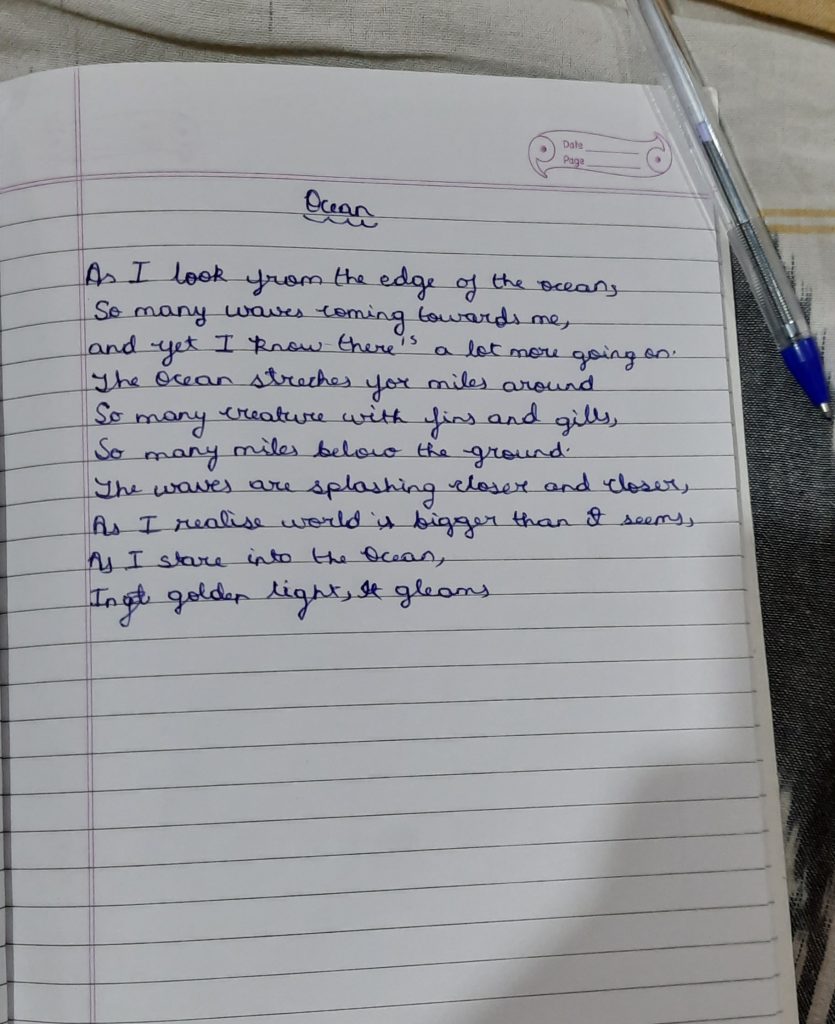 Date
Page
Ocean
As I look from the edge of the ocean,
So many waves coming towards me,
and yet I know there's a lot more going on.
The Ocean streches for miles around
So many creature with fins and gills,
So many miles below the ground.
The waves are splashing closer and closer,
As I realise world is bigger than it seems,
As I stare into the Ocean,
In golden light, it gleams